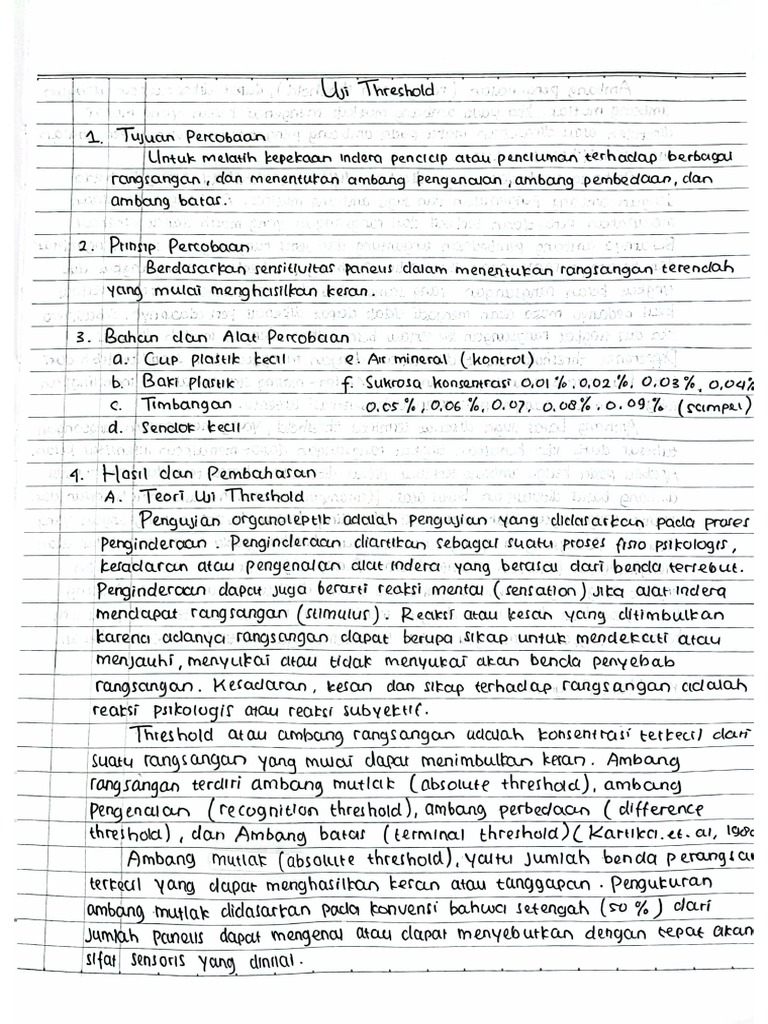 Uji Threshold
1. Tujuan Percobaan
Untuk melatih kepekaan indera pencicip atau penciuman terhadap berbagai
rangsangan, dan menentukan ambang pengenalan, ambang pembedaan, dan
ambang batas.
2. Prinsip Percobaan
Berdasarkan sensitivitas panelis dalam menentukan rangsangan terendah
yang mulai menghasilkan kesan.
3. Bahan dan Alat Percobaan
a. Cup plastik kecil e. Air mineral (kontrol)
b. Baki plastik f. Sukrosa konsentrasi 0,01%, 0,02%, 0,03%, 0,04%
c. Timbangan 0,05%, 0,06%, 0,07, 0,08%, 0,09% (sampel)
d. Sendok kecil
4. Hasil dan Pembahasan
A. Teori Uji Threshold
Pengujian organoleptik adalah pengujian yang didasarkan pada proses
Penginderaan. Penginderaan diartikan sebagai suatu proses fisio psikologis,
kesadaran atau pengenalan alat indera yang berasal dari benda tersebut.
Penginderaan dapat juga berarti reaksi mental (sensation) jika alat indera
mendapat rangsangan (stimulus). Reaksi atau kesan yang ditimbulkan
karena adanya rangsangan dapat berupa sikap untuk mendekati atau
menjauhi, menyukai atau tidak menyukai akan benda penyebab
rangsangan. Kesadaran, kesan dan sikap terhadap rangsangan adalah
reaksi psikologis atau reaksi subyektif.
Threshold atau ambang rangsangan adalah konsentrasi terkecil dari
suatu rangsangan yang mulai dapat menimbulkan kesan. Ambang
rangsangan terdiri ambang mutlak (absolute threshold), ambang
pengenalan (recognition threshold), ambang perbedaan (difference
threshold), dan Ambang batas (terminal threshold) (Kartika.et.al,
Ambang mutlak (absolute threshold), yaitu jumlah benda perangsan
terkecil yang dapat menghasilkan kesan atau tanggapan. Pengukuran
ambang mutlak didasarkan pada konvensi bahwa setengah (50%) dari
jumlah panelis dapat mengenal atau dapat menyebutkan dengan tepat akan
sifat sensoris yang dinilai.